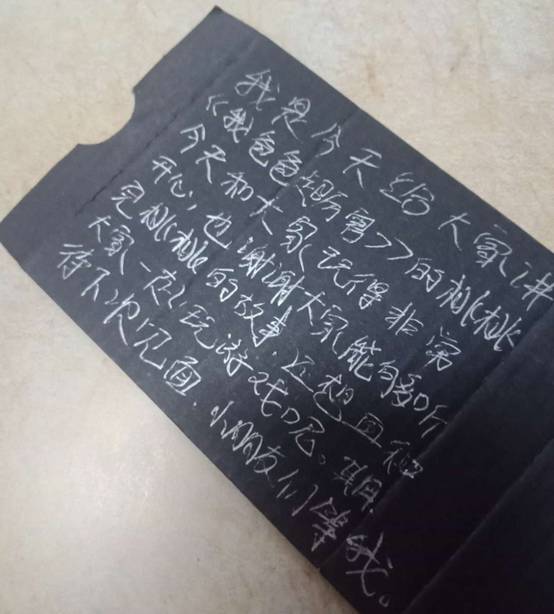 我是今天给大家讲
《我爸爸超厉害》的桃桃
今天和大家玩得非常
开心,也谢谢大家能够听
完桃桃的故事.还想再和
大家一起玩游戏呢。期
待下次见面.小朋友们等我。